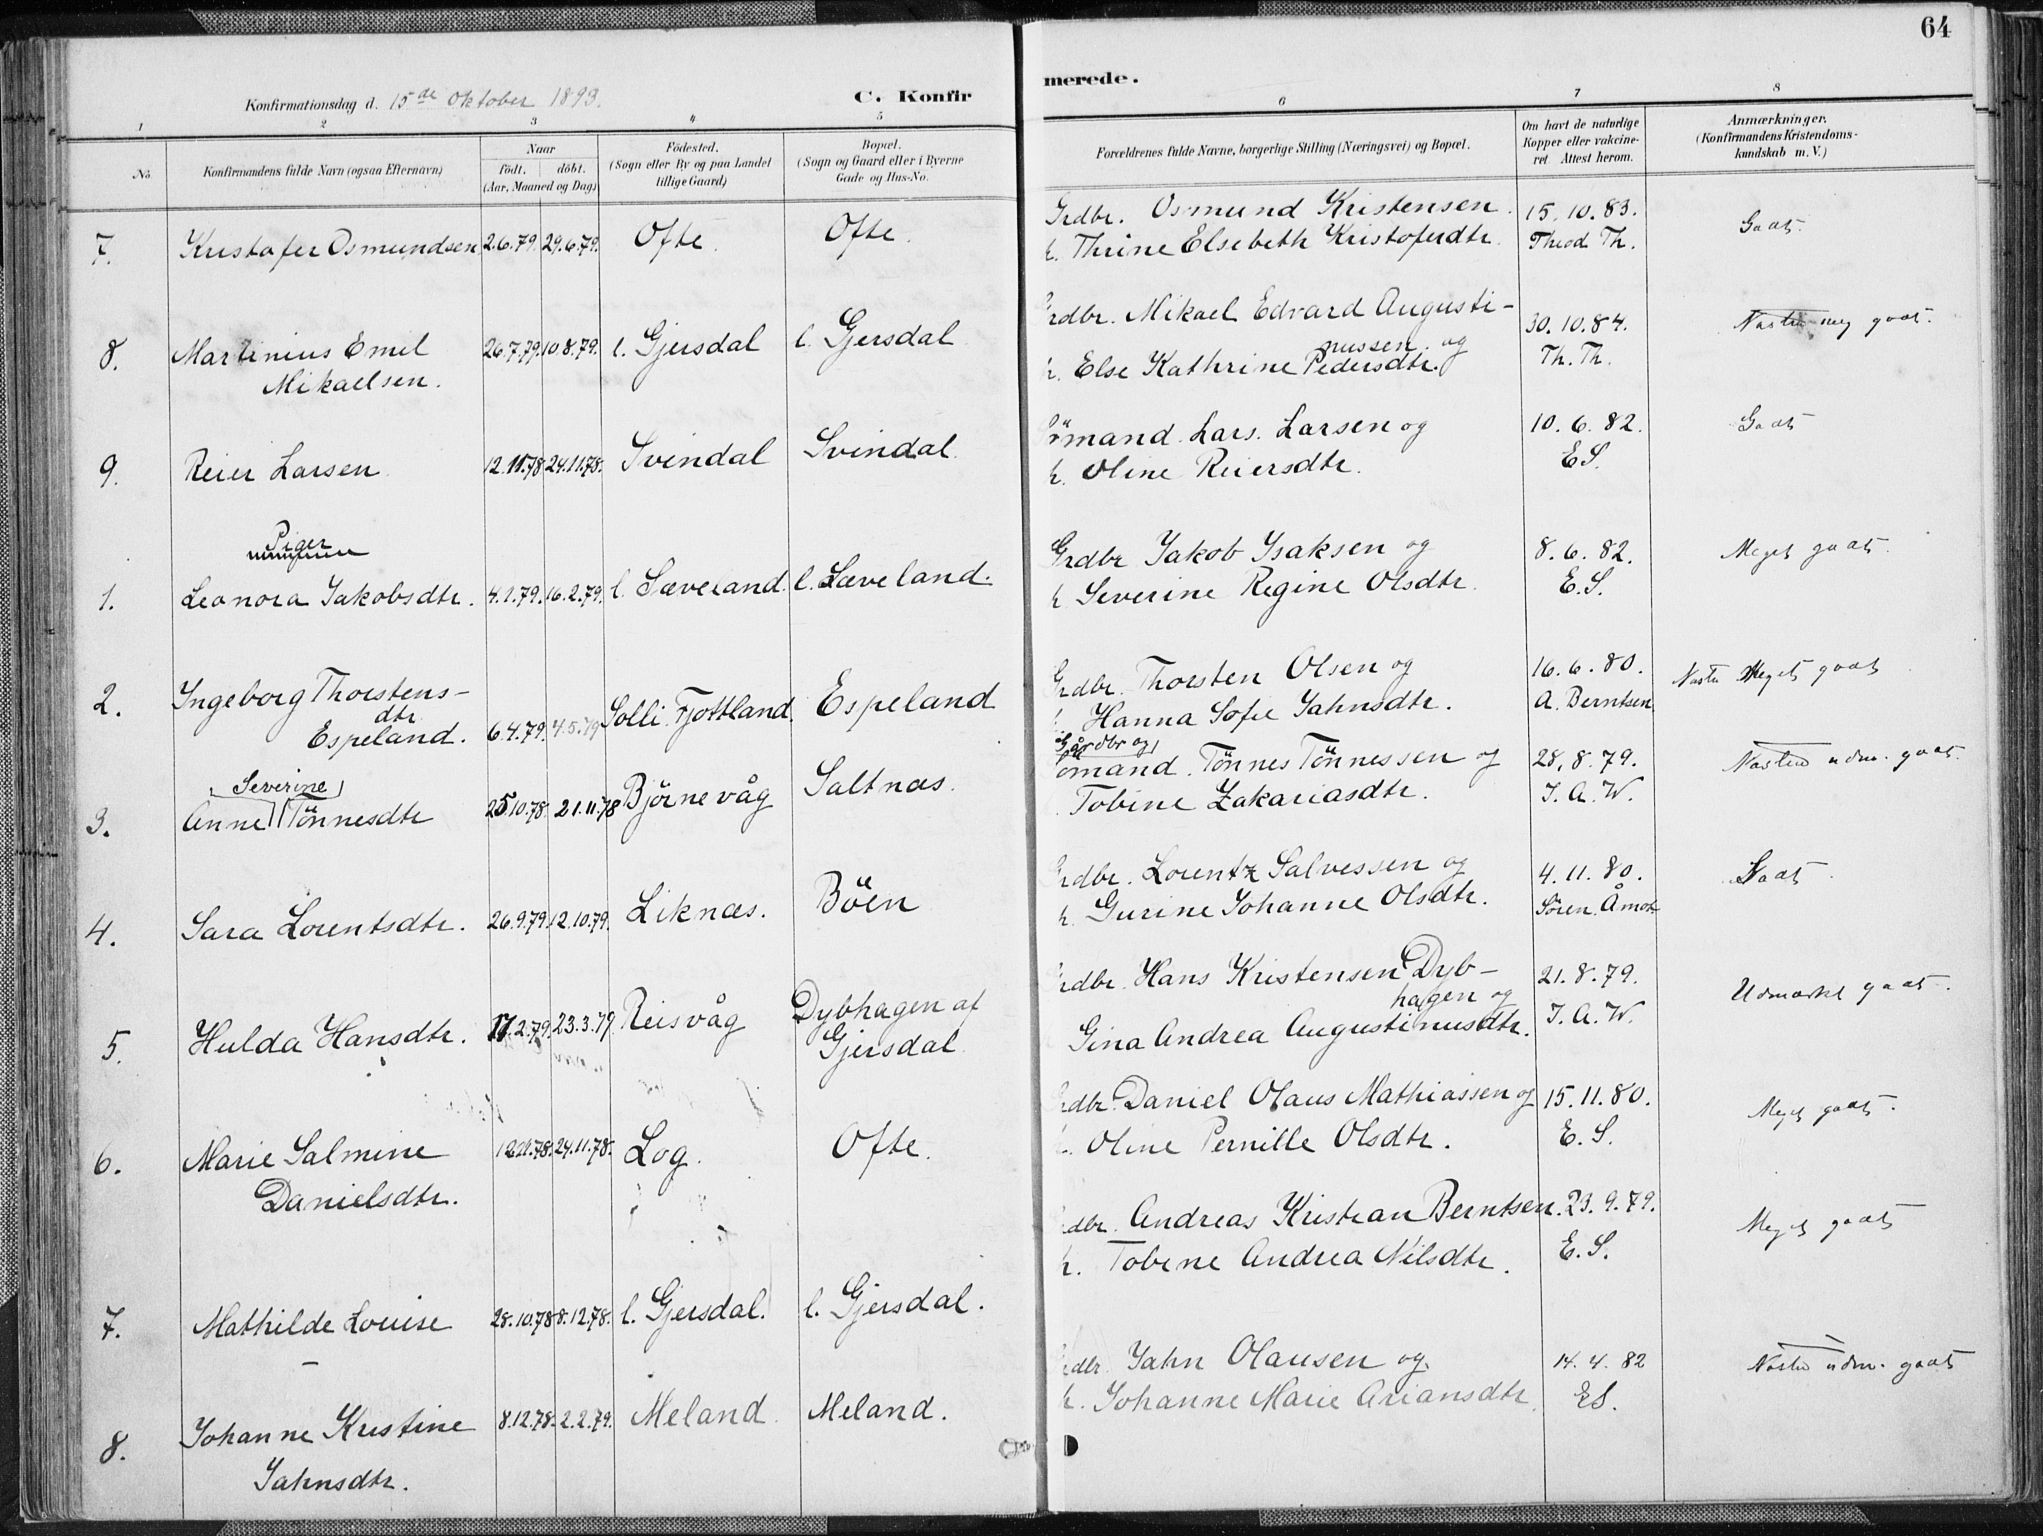 64
Konfirmationsdag d. 15de Oktober 1893.
C. Konfirmerede.
1 2 3 4 5 6 7 8
No
Konfirmandens fulde Navn (ogsaa Efternavn)
Naar
født. døbt.
(Aar, Maaned og Dag)
Födested.
(Sogn eller By og paa Landet
tillige Gaard)
Bopæl.
(Sogn og Gaard eller i Byerne
Gade og Hus-No.
Forældrenes fulde Navne, borgerlige Stilling (Næringsvei) og Bopæl.
Om havt de naturlige
Kopper eller vakcine-
ret. Attest herom.
Anmærkninger.
(Konfirmandens Kristendoms-
kundskab m. V.)
7. Kristofer Osmundsen 2.6.79. 29.6.79. Ofte. Ofte.
Grdbr. Osmund Kristensen 15.10.83. Godt.
h. Thrine Elsebeth Kristoferdtr. Theod Th.
8. Martinius Emil 26.7.79. 10.8.79. l. Gjersdal l. Gjersdal
Mikaelsen.
Grdbr. Mikael Edvard Augusti- 30.10.84. Næsten meg godt.
nussen og
h. Else Kathrine Pedersdtr. Th. Th.
9. Reier Larsen 12.11.78 24.11.78. Svindal Svindal.
Sömand Lars. Larsen og 10.6.82. Godt
h. Oline Reiersdtr. E.S.
Piger
1. Leonora Jakobsdtr. 4.1.79. 16.2.79. l. Læveland. l. Læveland.
Grdbr Jakob Isaksen og 8.6.82. Meget godt.
h. Severine Regine Olsdtr. E.S.
2. Ingeborg Thorstens-
dtr
Espeland. 6.4.79. 4.5.79 Solli Fjotland. Espeland
Grdbr. Thorsten Olsen og 16.6.80. Næsten Meget godt
Hanna Sofie Jahnsdtr. A. Berntsen
3. Severine
Anne Tönnesdtr 25.10.78. 21.11.78 Björnevåg Saltnæs.
Gårdbr og
Sömand. Tönnes Tönnessen og 28.8.79. Næsten udm. godt.
Tobine Zakariasdtr. J.A.W.
4. Sara Lorentsdtr. 26.9.79. 12.10.79. Liknæs. Böen
Grdbr. Lorentz Salvessen og 4.11.80. Godt
h. Gurine Johanne Olsdtr. Sören Åmot
5. Hulda Hansdtr. 17.2.79. 23.3.79. Reisvåg Dybhagen af
Gjersdal
Grdbr. Hans Kristensen Dyb- 21.8.79. Udmærket godt.
hagen og
Gina Andrea Augustinusdtr. J.A.W.
6. Marie Salmine 24.11.78. Log. Ofte.
Danielsdtr.
Grdbr. Daniel Olaus Mathiassen og 15.11.80. Meget godt.
h. Oline Pernille Olsdtr. E.S.
7. Mathilde Louise 28.10.78 8.12.78. l. Gjersdal. l. Gjersdal.
Grdbr. Andreas Kristian Berntsen. 23.9.79. Meget godt
h. Tobine Andrea Nilsdtr. E.S.
8. Johanne Kristine 8.12.78. 2.2.79. Meland. Meland.
Jahnsdtr.
Grdbr. Jahn Olausen og 14.4.82 Næsten udm. godt
h. Johanne Marie Ariansdtr. E.S.